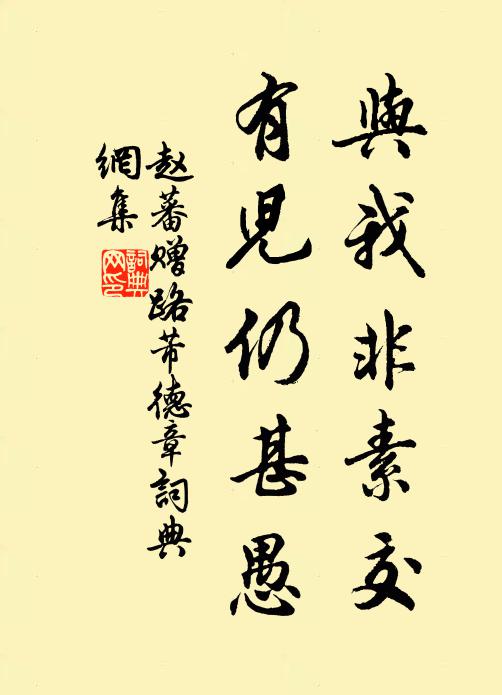 與我非素交
有兒仍甚愚
赵蕃赠路芾德章詞典
網集
詞典
网印